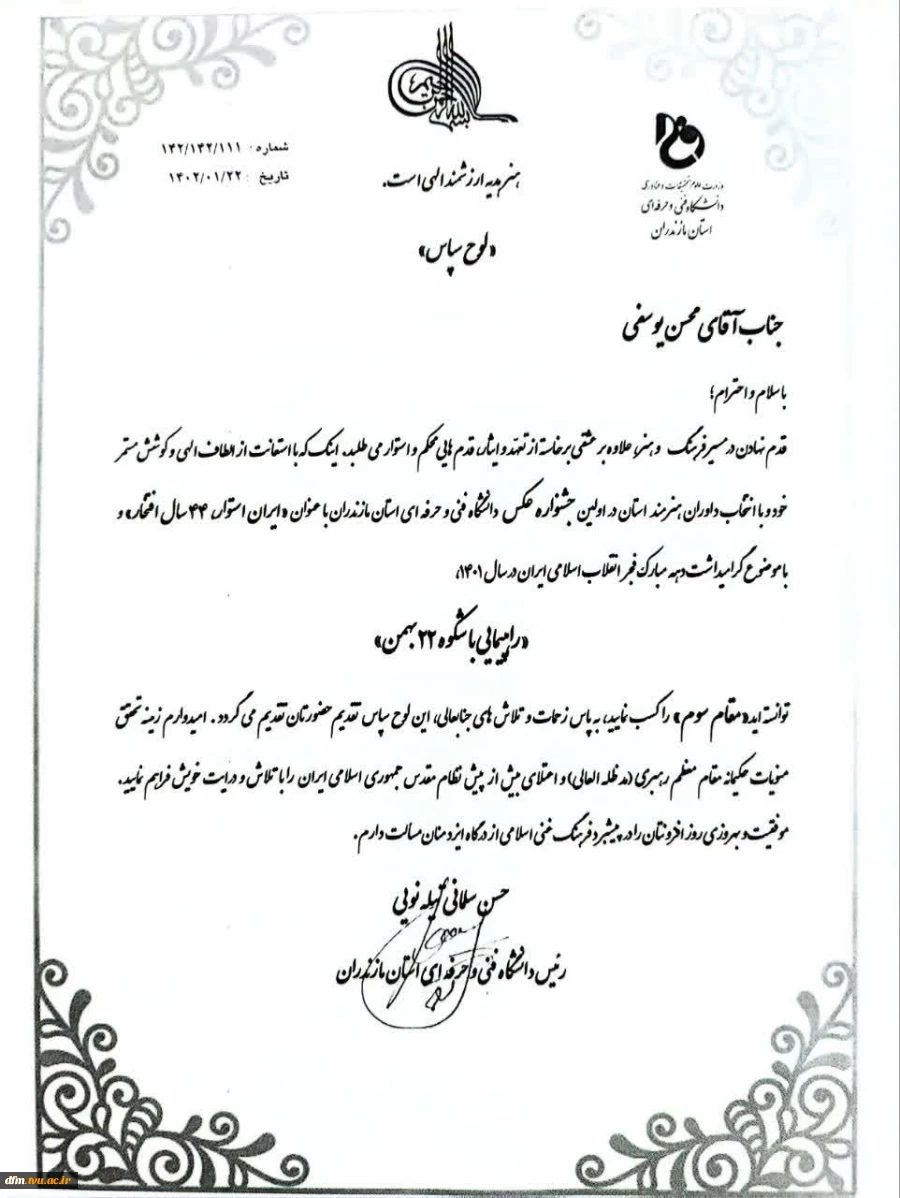 بسم الله الرحمن الرحیم
شماره: ۱۴۲/۱۴۲/۱۱۱
تاریخ : ۱۴۰۲/۰۱/۲۲
وزارت علوم تحقیقات و فناوری
دانشگاه فنی و حرفه‌ای
استان مازندران
هنر هدیه ارزشمند الهی است.
«لوح سپاس»
جناب آقای محسن یوسفی
با سلام و احترام؛
قدم نهادن در مسیر فرهنگ و هنر، علاوه بر عشقی برخاسته از تعهّد و ایثار، قدم هایی محکم و استوار می طلبد. اینک که با استعانت از الطاف الهی و کوشش مستمر
خود و با انتخاب داوران هنرمند استان در اولین جشنواره عکس دانشگاه فنی و حرفه ای استان مازندران با عنوان «ایران استوار، ۴۴ سال افتخار» و
با موضوع گرامیداشت دهه مبارک فجر انقلاب اسلامی ایران در سال ۱۴۰۱،
«راهپیمایی با شکوه ۲۲ بهمن»
توانسته اید «مقام سوم» را کسب نمایید، به پاس زحمات و تلاش های جنابعالی، این لوح سپاس تقدیم حضورتان تقدیم می گردد. امیدوارم زمینه تحقق
منویات حکیمانه مقام معظم رهبری (مد ظله العالی) و اعتلای بیش از پیش نظام مقدس جمهوری اسلامی ایران را با تلاش و درایت خویش فراهم نمایید.
موفقیت و بهروزی روز افزونتان را در پیشبرد فرهنگ غنی اسلامی از درگاه ایزد منان مسالت دارم.
حسن سلمانی نویی
رئیس دانشگاه فنی و حرفه ای استان مازندران
dfm.tvu.ac.ir